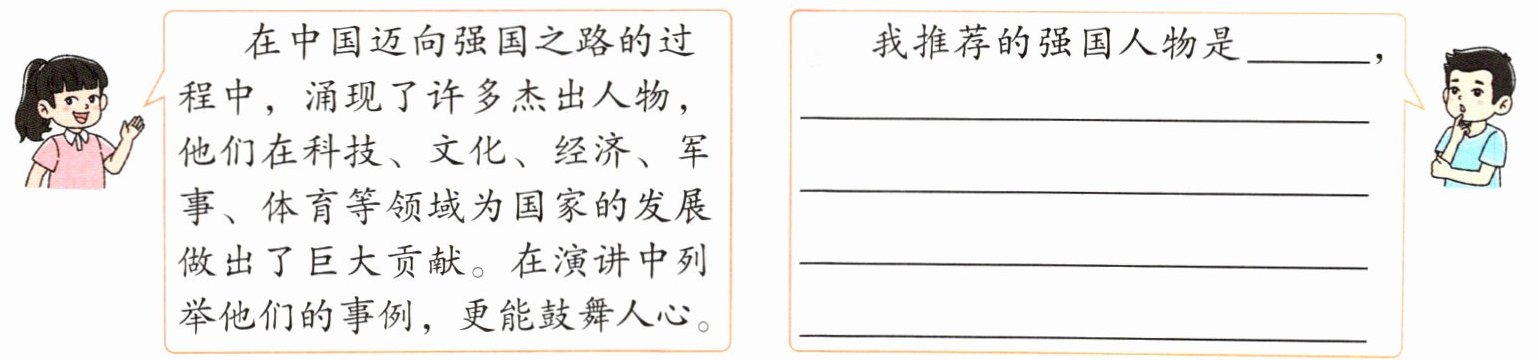 在中国迈向强国之路的过
程中，涌现了许多杰出人物，
他们在科技、文化、经济、军
事、体育等领域为国家的发展
做出了巨大贡献。在演讲中列
举他们的事例，更能鼓舞人心。
我推荐的强国人物是______，